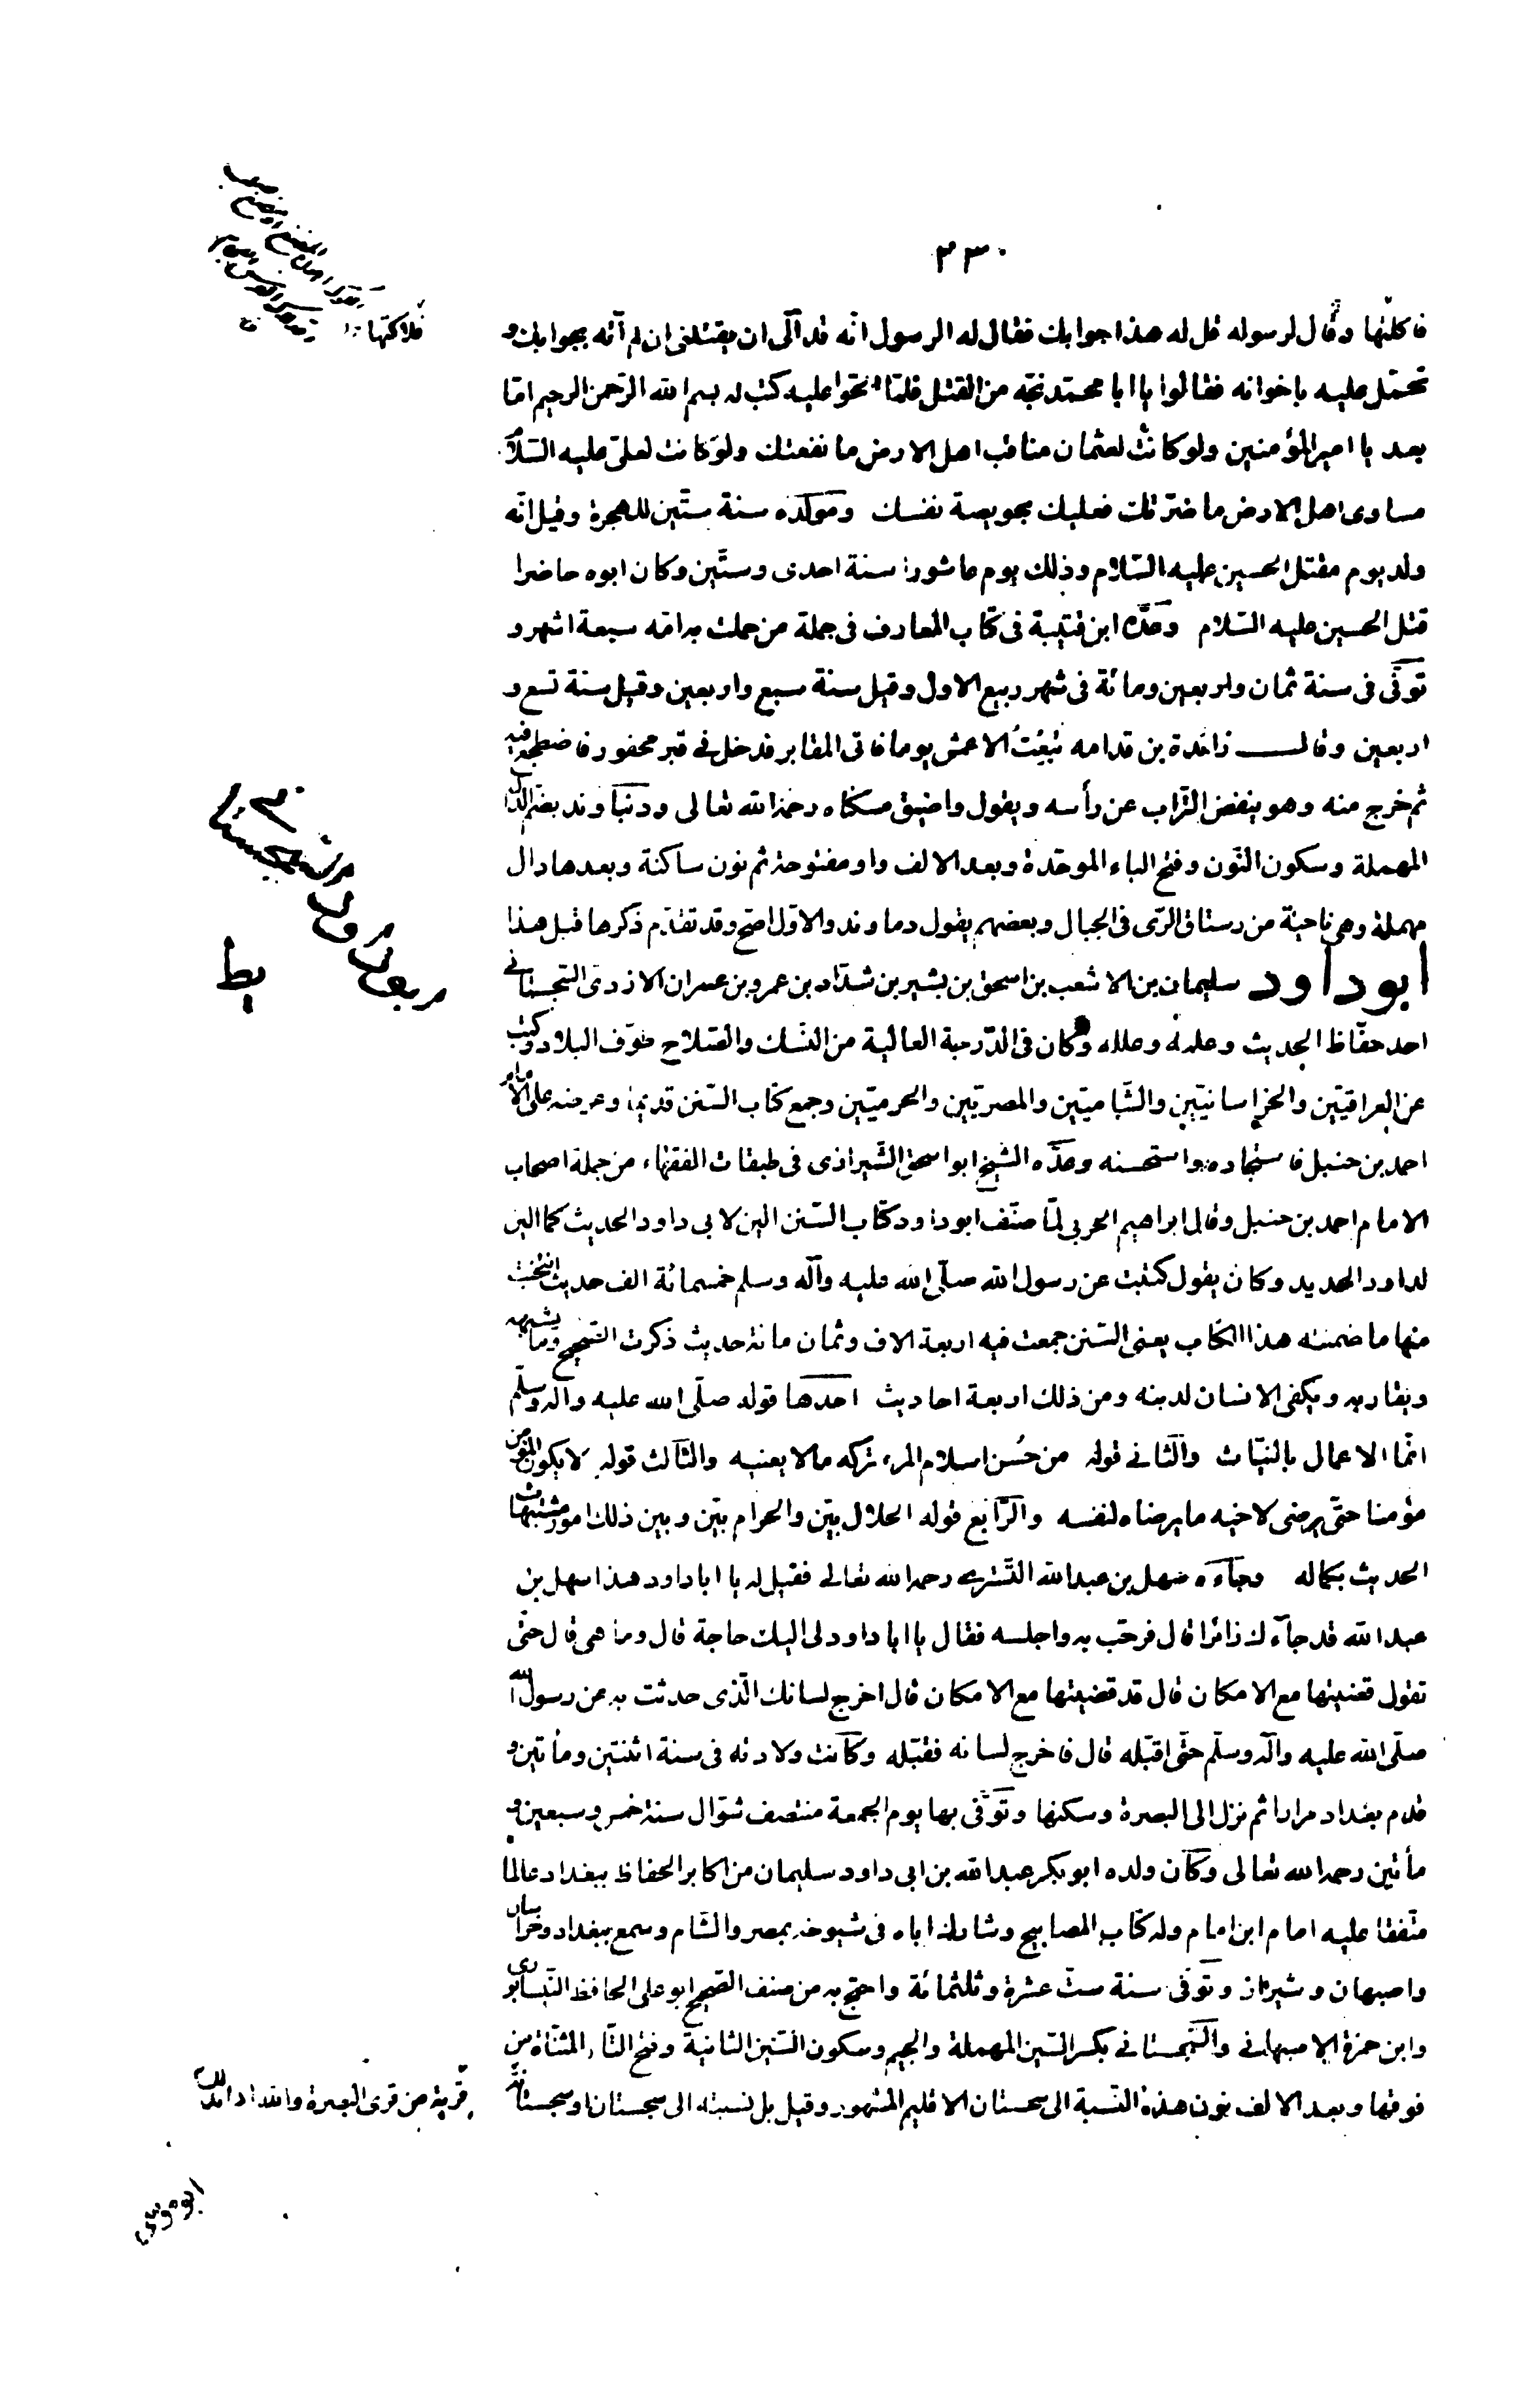 ٢٣٠
فاكلتها وقال لرسوله قل له هذا جوابك فقال له الرسول انه قد آلى ان يقتلنى ان لم آته بجوابك و
تحمّل عليه باخوانه فقالوا يا ابا محمّد نجّه من القتل فلمّا الحّوا عليه كتب له بسم الله الرّحمن الرحيم امّا
بعد يا امير المؤمنين ولو كانت لعثمان مناقب اهل الارض ما نفعتك ولو كانت لعلىّ عليه السّلام
مساوى اهل الارض ما ضرّتك فعليك بخويصة نفسك ومولده سنة ستّين للهجرة وقيل انّه
ولد يوم مقتل الحسين عليه السّلام وذلك يوم عاشورا سنة احدى وستّين وكان ابوه حاضرا
قتل الحسين عليه السّلام وعدّه ابن قتيبة فى كتاب المعارف فى جملة من حملت به امّه سبعة اشهر و
توفّى فى سنة ثمان واربعين ومائة فى شهر ربيع الاول وقيل سنة سبع واربعين وقيل سنة تسع و
اربعين وقالـــ زائدة بن قدامه تبعتُ الاعمش يوما فاتى المقابر فدخل فى قبر محفور فاضطجع فيه
ثم خرج منه وهو ينفض التّراب عن رأسه ويقول واضيق مسكناه رحمه الله تعالى ودنباوند بضم الدال
المهملة وسكون النّون وفتح الباء الموحّدة وبعد الالف واو مفتوحة ثم نون ساكنة وبعدها دال
مهملة وهى ناحية من رستاق الرّى فى الجبال وبعضهم يقول دماوند والاوّل اصحّ وقد تقدّم ذكرها قبل هذا
ابو داود سليمان بن الاشعب بن اسحق بن بشير بن شدّاد بن عمرو بن عمران الازدىّ السّجستانى
احد حفّاظ الحديث وعلمه وعلله وكان فى الدّرجة العالية من النّسك والصّلاح طوّف البلاد وكتب
عن العراقيّين والخراسانيّين والشّاميّين والمصريّين والحرميّين وجمع كتاب السّنن قديما وعرضه على الامام
احمد بن حنبل فاستجاده واستحسنه وعدّه الشيخ ابو اسحق الشّيرازى فى طبقات الفقهاء من جملة اصحاب
الامام احمد بن حنبل وقال ابراهيم الحربى لمّا صنّف ابو داود كتاب السّنن الين لابى داود الحديث كما الين
لداود الحديد وكان يقول كتبت عن رسول الله صلّى الله عليه وآله وسلم خمسمائة الف حديث انتخبت
منها ما ضمنته هذا الكتاب يعنى السّنن جمعت فيه اربعة الاف وثمان مائة حديث ذكرت الصّحيح وما يشبهه
ويقاربه ويكفى الانسان لدينه ومن ذلك اربعة احاديث احدها قوله صلّى الله عليه وآله وسلّم
انّما الاعمال بالنيّات والثّانى قوله من حُسن اسلام المرء تركه مالا يعنيه والثّالث قوله لا يكون المؤمن
مؤمنا حتّى يرضى لاخيه ما يرضاه لنفسه والرّابع قوله الحلال بيّن والحرام بيّن وبين ذلك امور مشتبهات
الحديث بكماله وجاءه سهل بن عبد الله التّسترى رحمه الله تعالى فقيل له يا ابا داود هذا سهل بن
عبد الله قد جآءك زائرا قال فرحّب به واجلسه فقال يا ابا داود لى اليك حاجة قال وما هى قال حتّى
تقول قضيتها مع الامكان قال قد قضيتها مع الامكان قال اخرج لسانك الّذى حدثت به عن رسول الله
صلّى الله عليه وآله وسلّم حتّى اقبّله قال فاخرج لسانه فقبّله وكانت ولادته فى سنة اثنتين ومأتين و
قدم بغداد مرارا ثم نزل الى البصرة وسكنها وتوفّى بها يوم الجمعة منتصف شوّال سنة خمس وسبعين و
مأتين رحمه الله تعالى وكان ولده ابو بكر عبد الله بن ابى داود سليمان من اكابر الحفاظ ببغداد عالما
متّفقا عليه امام ابن امام وله كتاب المصابيح وشارك اباه فى شيوخه بمصر والشّام وسمع ببغداد وخراسان
واصبهان وشيراز وتوفّى سنة ستّ عشرة وثلثمائة واحتج به من صنف الصّحيح ابو على الحافظ النّيسابورى
وابن حمزة الاصبهانى والسّجستانى بكسر السّين المهملة والجيم وسكون السّين الثانية وفتح التّاء المثنّاة من
فوقها وبعد الالف نون هذه النّسبة الى سجستان الاقليم المشهور وقيل بل نسبته الى سجستان او سجستانة
قرية من قرى البصرة والله اعلم
فلاكتها
يط
ابو موسى